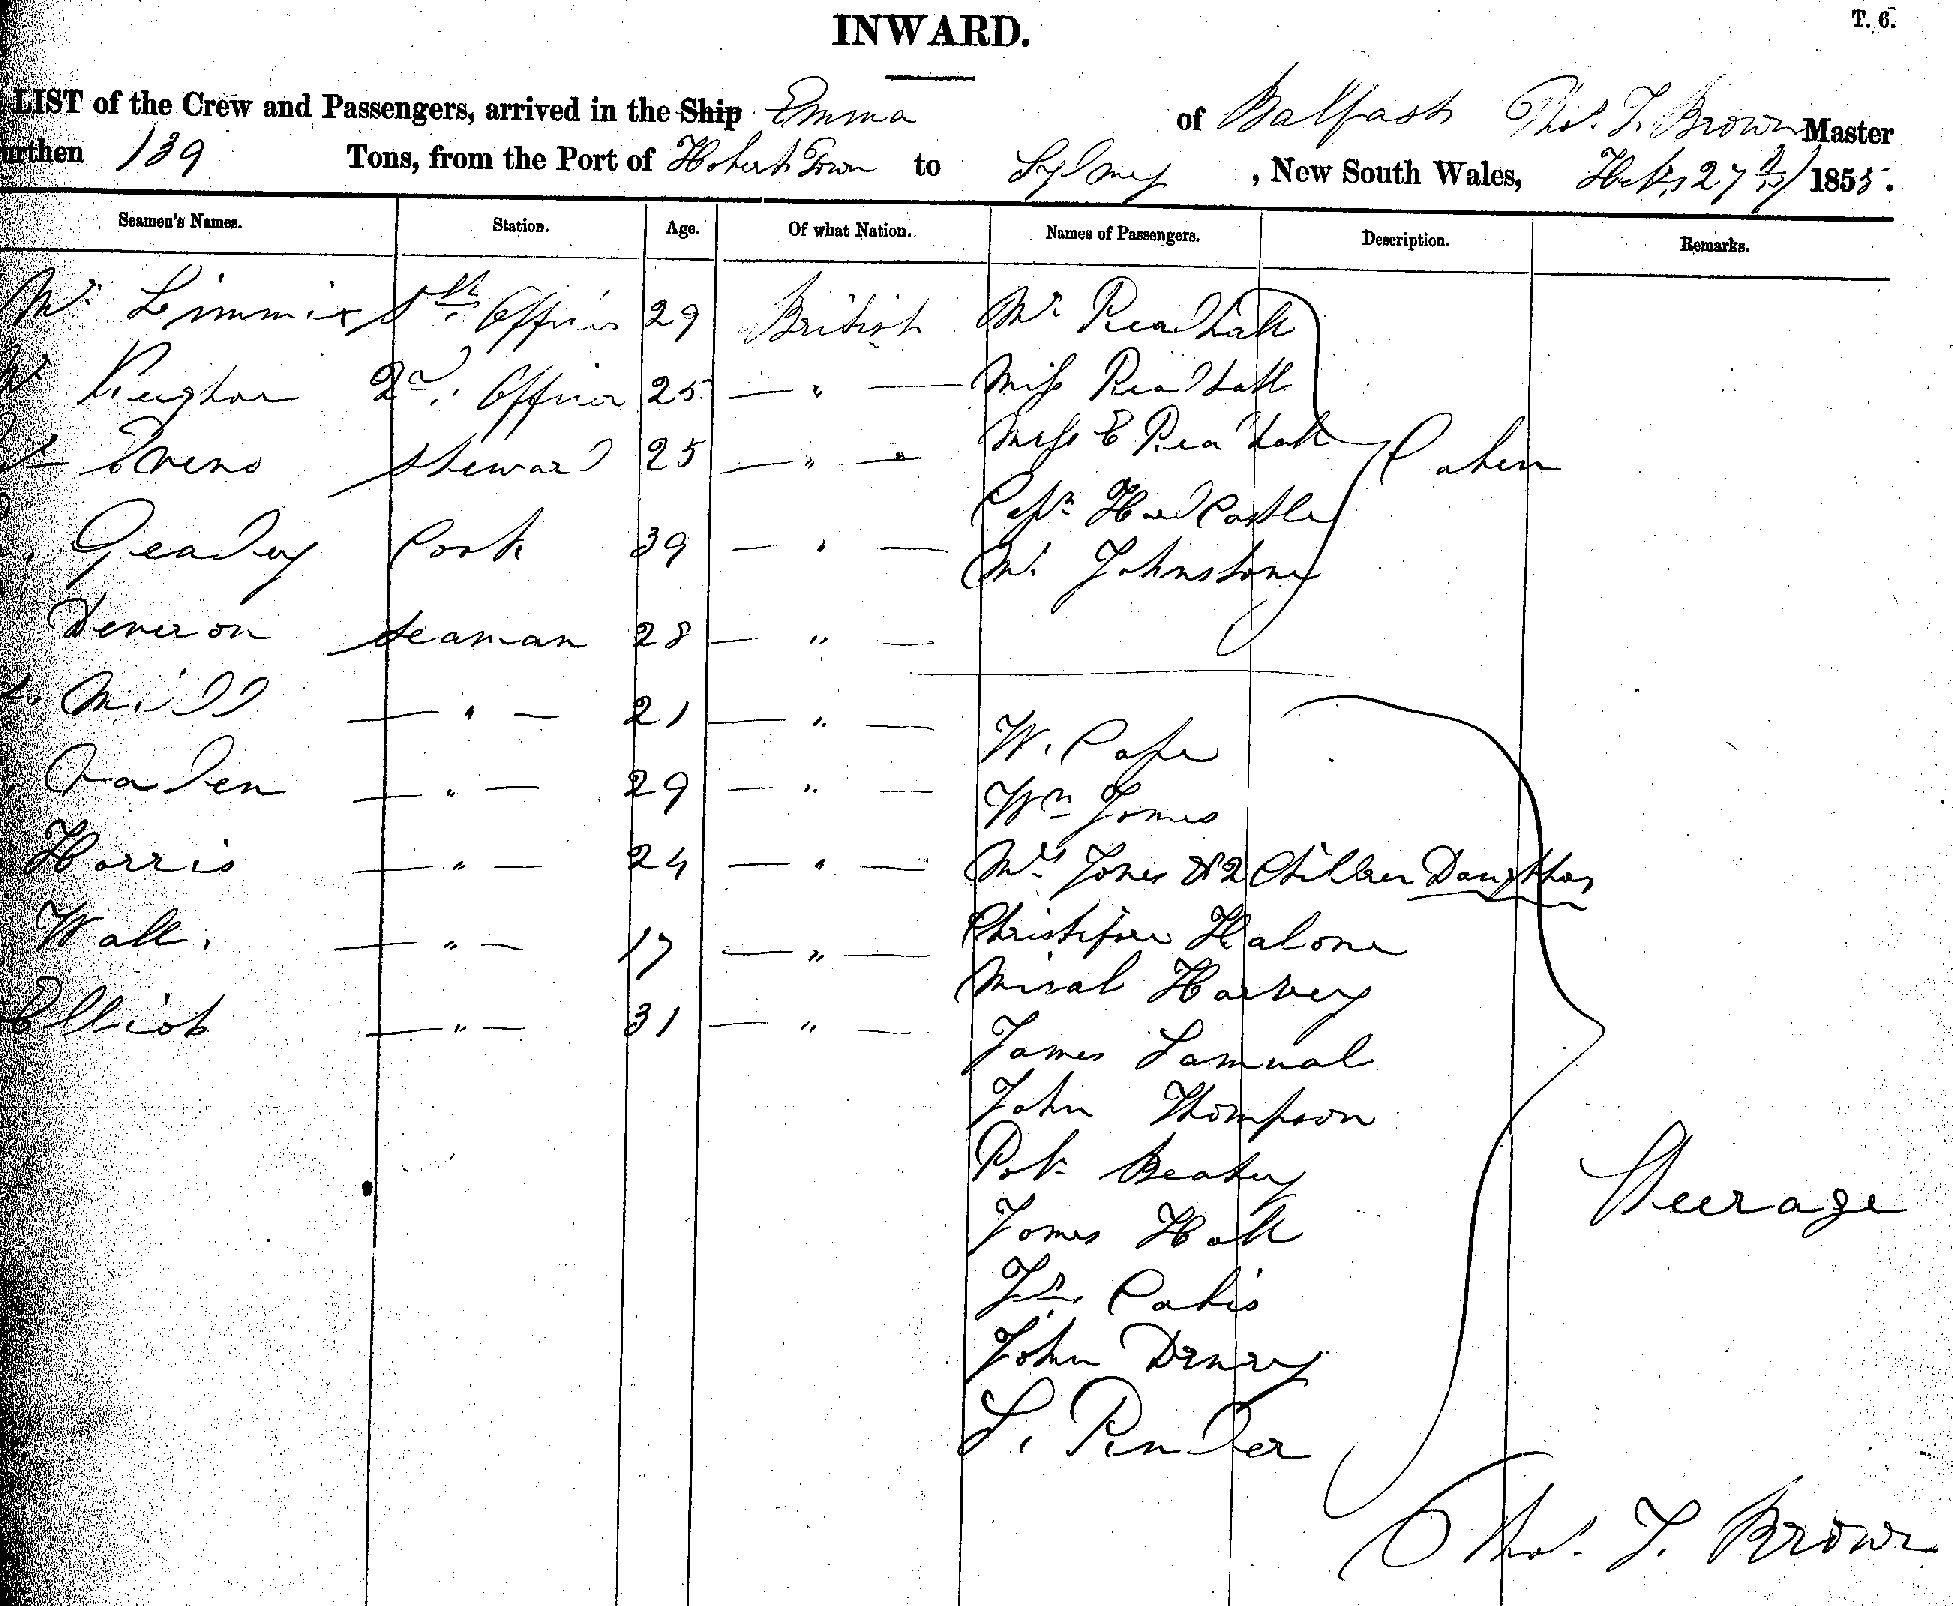 INWARD.
T. 6.
LIST of the Crew and Passengers, arrived in the Ship Emma of Balfast Thos. T. Brown Master
urthen 139 Tons, from the Port of Hobart Town to Sydney, New South Wales, 27th 1855.
Seamen's Names. Station. Age. Of what Nation. Names of Passengers. Description. Remarks.
Mr Limmix 1st Officer 29 British Mr Readhall
2nd Officer 25 — " — Miss Readhall
Evens Steward 25 — " — Miss E Readhall Caben
Geadey Cook 39 — " — Capn Hardcastle
Mr Johnstone
Deveron Seaman 28 — " —
Mill — " — 21 — " —
W. Cape
Oraden — " — 29 — " —
Wm Jones
Harris — " — 24 — " — Mrs Jones & 2 Children Daughter
Wall. — " — 17 — " — Christifore Halone
Harvey
Elliot — " — 31 — " — James Samual
John Thompson
Pat. Beatey
Steerage
James Hall
Jn. Catis
John Drury
S. Pinder
Thos. T. Brown